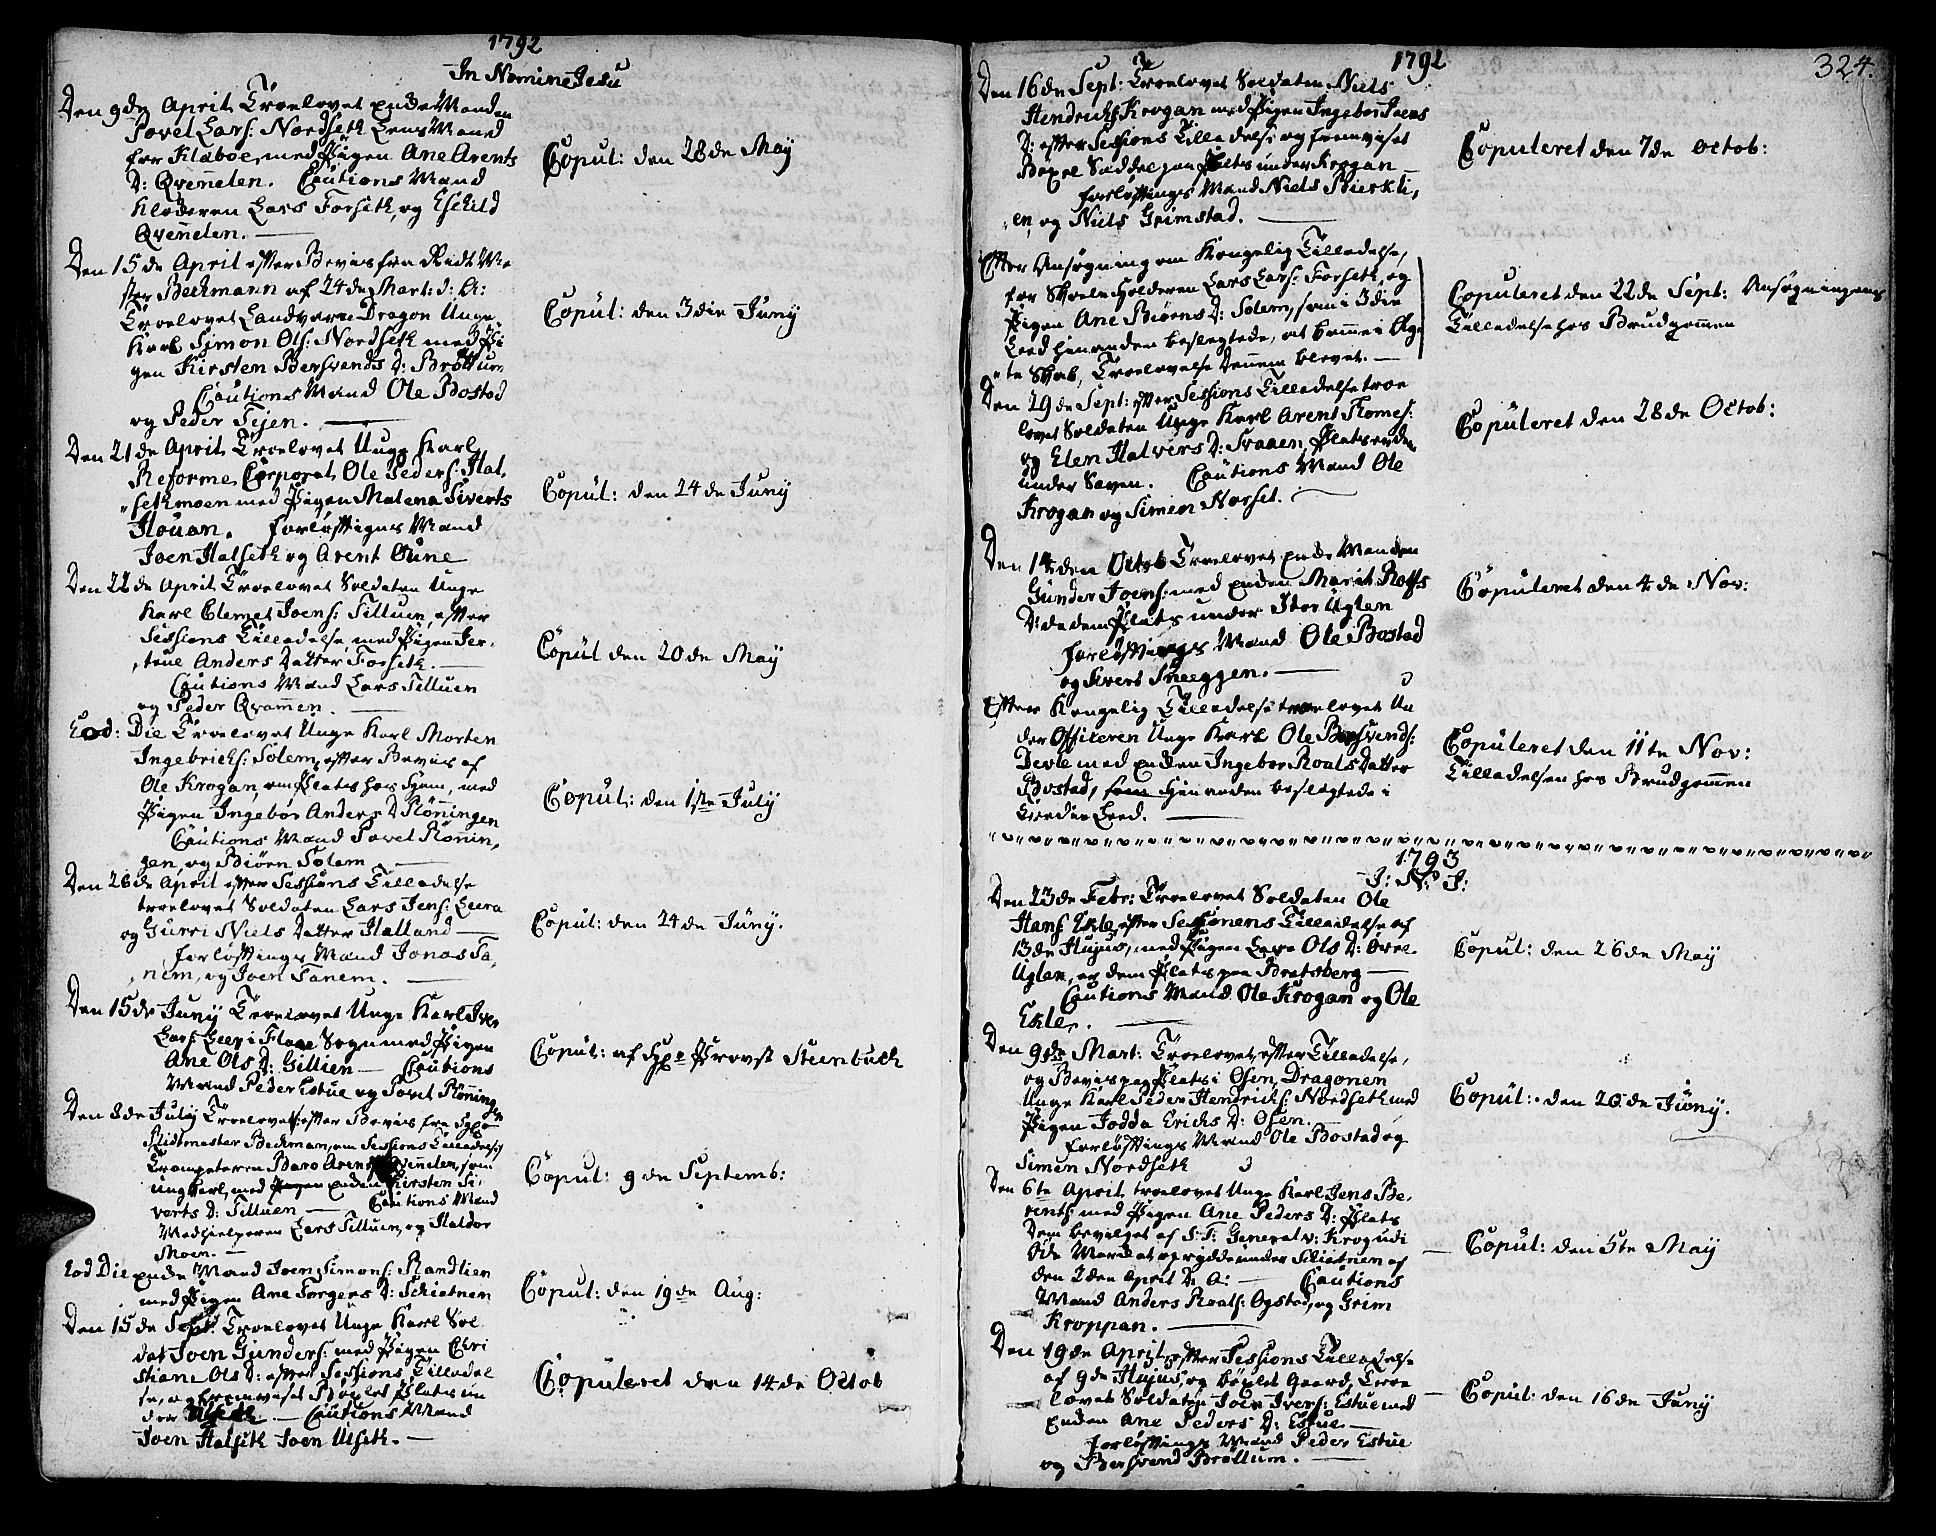 1792
In Nomine Jesu
Den 9de April Troelovet Enke Manden
Povel Lars: Nordseth Lens Mand
for Klæboe, med Pigen Ane Arents
D: Qvennelen. Cautions Mand
Klokeren Lars Forseth, og Eskild
Qvennelen.
Copul: den 28de May
Den 15de April efter Beviis fra Ridt Me-
ster Beckmann af 24de Mart: d: A:
Troelovet Landværn Dragon Unge
Karl Simon Ols: Nordseth med Pi
gen Kirsten Bersvends D: Brøttum
Cautions Mand Ole Bostad
og Peder Tejen.
Copul: den 3die Juny
Den 21de April Troelovet Unge Karl
Reforme Corporal Ole Peders: Hal,
„sethmoen med Pigen Malena Siverts
Houan. Forløftings Mand
Joen Halseth og Arent Oune
Copul: den 24de Juny
Den 22de April Troelovet Soldaten Unge
Karl Clemet Joens: Tilluen, efter
Sessions Tilladelse, med Pigen Jer,
„true Anders Datter Forseth.
Cautions Mand Lars Tilluen
og Peder Qvammen.
Copul den 20de May
Eod: Die Troelovet Unge Karl Morten
Ingebrichs: Solem, efter Beviis af
Ole Krogan, om Plats hos ham, med
Pigen Ingebor Anders D: Rønningen
Cautions Mand Povel Rønnin,
gen, og Biørn Solem
Copul: den 1ste July
Den 26de April efter Sessions Tilladelse
troelovet Soldaten Lars Jens: Leera
og Gurri Niels Datter Halland
Forløftings Mand Jonas Ta,
„nem, og Joen Tanem.
Copul: den 24de Juny.
Den 15de Juny Troelovet Unge Karl Iver
Lars: Leer i Flaae Sogn med Pigen
Ane Ols D: Gillien Cautions
Mand Peder Estue og Povel Rønningen
Copul: af Hr Provst Steenbuch
Den 8de July Troelovet efter Beviis fra
Ridtmester Beckman, om Sessions Tilladelse
Trompeteren Baro Arens Qvennelen, som
ung Karl, med Pigen Enken Kirsten Si-
verts D: Tilluen Cautions Mand
Medhielperen Lars Tilluen, og Haldor
Moen.
Copul: 9de Septemb:
Eod Die Enke Mand Joen Simons: Randlien
med Pigen Ane Torgers D: Schietnen
Copul: den 19de Aug:
Den 15de Sept: Troelovet Unge Karl Sol
dat Joen Gunders: med Pigen Chri
stian Ols D: efter Sessions Tilladel
se, og fremviist Bøxlet Plats un
der Ulseth Cautions Mand
Joen Halseth Joen Ulseth.
Copuleret den 14de Octob
1792
324.
Den 16de Sept: Troelovet Soldaten Niels
Hendrichs Krogan med Pigen Ingebor Joens
D: efter Sessions Tilladelse og fremviset
Bøxel Seddel paa Plats under Krogan
Forløftings Mand Niels Bierkli,
„en, og Niels Grimstad.
Copuleret den 7de Octob:
Efter Ansøgning om Kongelig Tilladelse,
for Skoele Holderen Lars Lars: Forseth, og
Pigen Ane Biørns D: Solem, som i 3die
Leed hinanden beslegtede, at komme i Eg-
„te Skab, Troelovelse Dennem blevet.
Copuleret den 22de Sept: Ansøgningens
Tilladelse hos Brudgommen
Den 29de Sept: efter Sessions Tilladelse troe
lovet Soldaten Unge Karl Arent Thomes:
og Elen Halvers D: Svaaen, Plats
under Saven. Cautions Mand Ole
Krogan og Simen Norset.
Copuleret den 28de Octob:
Den 14den Octob Troelovet Enke Manden
Gunder Joens: med Enken Marit Rolfs
D: Plats under Stor Uglen
Forløftings Mand Ole Bostad
og Sivert Sneeggen.
Copuleret den 4de Nov:
Efter Kongelig Tilladelse troelovet Un
der Officeren Unge Karl Ole Bersvends:
Devle med Enken Ingebor Roals Datter
Bostad, som hinanden beslegtede i
Tredie Leed.
Copuleret den 11te Nov:
Tilladelsen hos Brudgommen
1793
J: N: J:
Den 23de Febr: Troelovet Soldaten Ole
Hans: Ekle, efter Sessionens Tilladelse af
13de Hujus, med Pigen Ols D: Øvre
Uglen, er dem Plats paa Bratsberg
Cautions Mand Ole Krogan og Ole
Ekle.
Copul: den 26de May
Den 9de Mart: Troelovet efter Tilladelse,
og Beviis paa Plats i Osen, Dragonen
Unge Karl Peder Hendrichs: Nordseth med
Pigen Jodda Erichs D: Osen.
Forløftings Mand Ole Bostad og
Simen Nordseth
Copul: den 20de Juny.
Den 6te April troelovet Unge Karl Jens Be,
rents: med Pigen Ane Peders D: Plats
Dem bevilget af S: T: General v: Krogh udi
Øde Mark at opryddes under Schietnen af
den 2den April D: A: Cautions
Mand Anders Roals: Ogstad, og Grim
Kroppan.
Copul: den 5te May
Den 19de April efter Sessions Tilladelse
af 9de Hujus, og bøxlet Gaard, Troe
lovet Soldaten Joen Ivers: Estue med
Enken Ane Peders D: Estue.
Forløftings Mand Peder Estue
og Bersvend Brøttum.
Copul: den 16de Juny